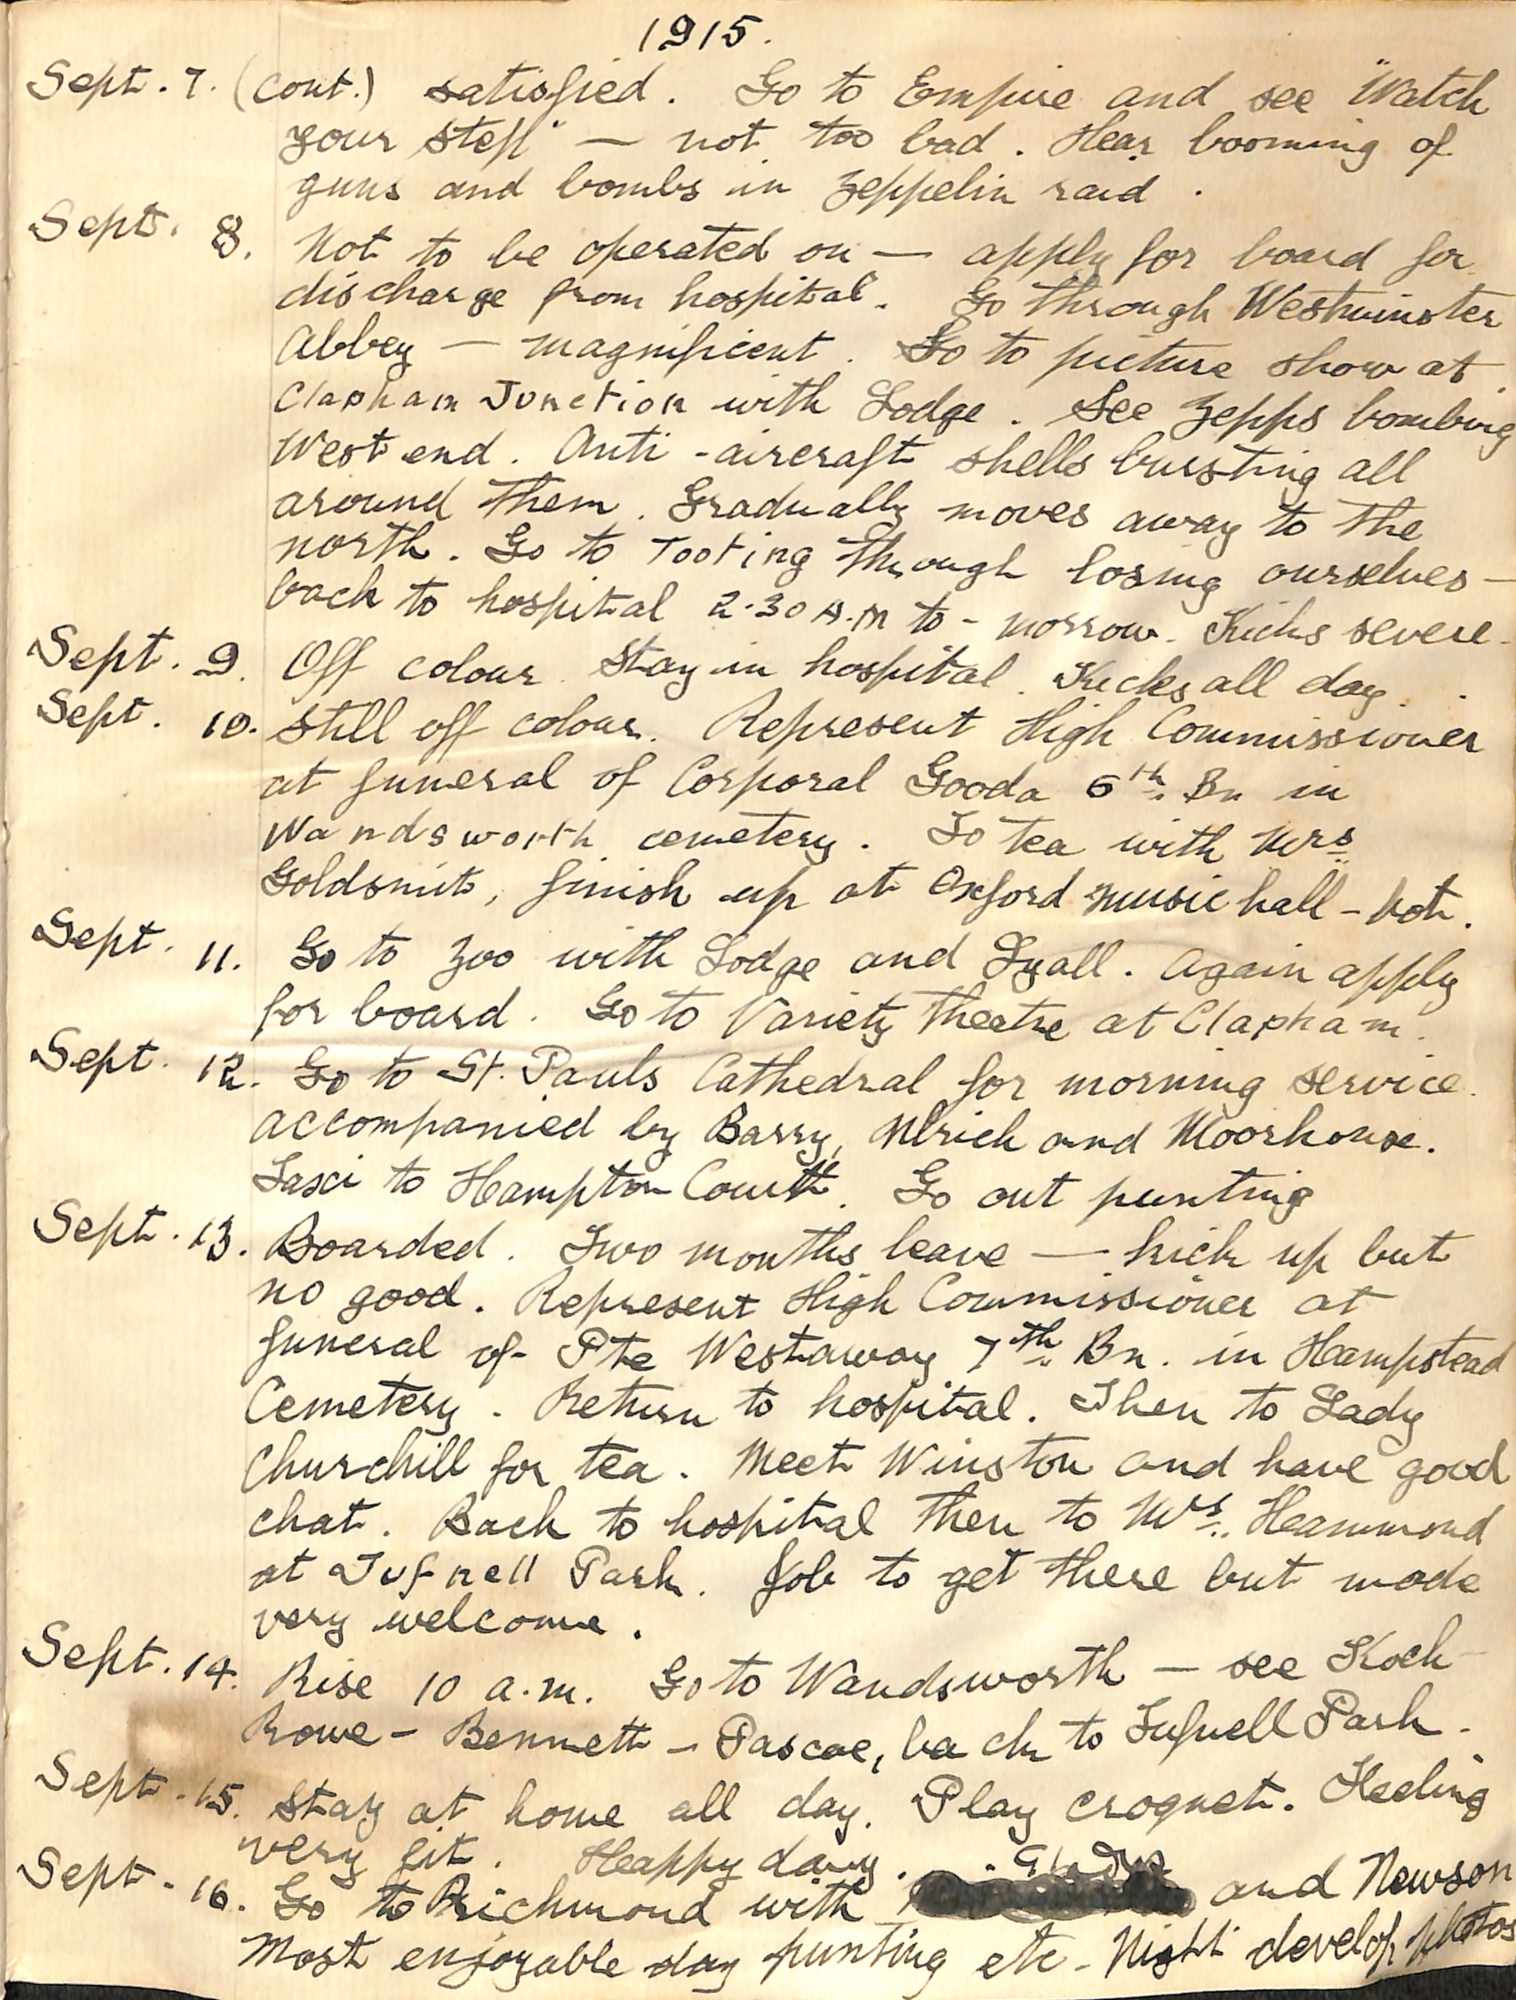 1915.
Sept. 7. (cont.) satisfied. Go to Empire and see "Watch
your step" — not too bad. Hear booming of
guns and bombs in Zeppelin raid.
Sept. 8. Not to be operated on — apply for board for
discharge from hospital. Go through Westminster
Abbey — magnificent. Go to picture show at
Clapham Junction with Lodge. See Zepps bombing
West end. Anti-aircraft shells bursting all
around them. Gradually moves away to the
north. Go to Tooting through losing ourselves —
back to hospital 2.30 A.M to-morrow. Kicks severe.
Sept. 9. Off colour. Stay in hospital. Kicks all day.
Sept. 10. Still off colour. Represent High Commissioner
at funeral of Corporal Gooda 6th Bn in
Wandsworth cemetery. To tea with Mrs
Goldsmit, finish up at Oxford music hall - hot.
Sept. 11. Go to Zoo with Lodge and Lyall. Again apply
for board. Go to Variety Theatre at Clapham.
Sept. 12. Go to St. Pauls Cathedral for morning service
accompanied by Barry, Ulrich and Moorhouse.
Taxi to Hampton Court. Go out punting
Sept. 13. Boarded. Two months leave — kick up but
no good. Represent High Commissioner at
funeral of Pte Westaway 7th Bn. in Hampstead
Cemetery. Return to hospital. Then to Lady
Churchill for tea. Meet Winston and have good
chat. Back to hospital then to Mrs. Hammond
at Tufnell Park. Job to get there but made
very welcome.
Sept. 14. Rise 10 a.m. Go to Wandsworth — see Koch -
Rowe - Bennett - Pascoe, back to Tufnell Park.
Sept. 15. Stay at home all day. Play croquet. Feeling
very fit. Happy day.
Sept. 16. Go to Richmond with Gladys and Newson
Most enjoyable day punting etc - Night develop photos